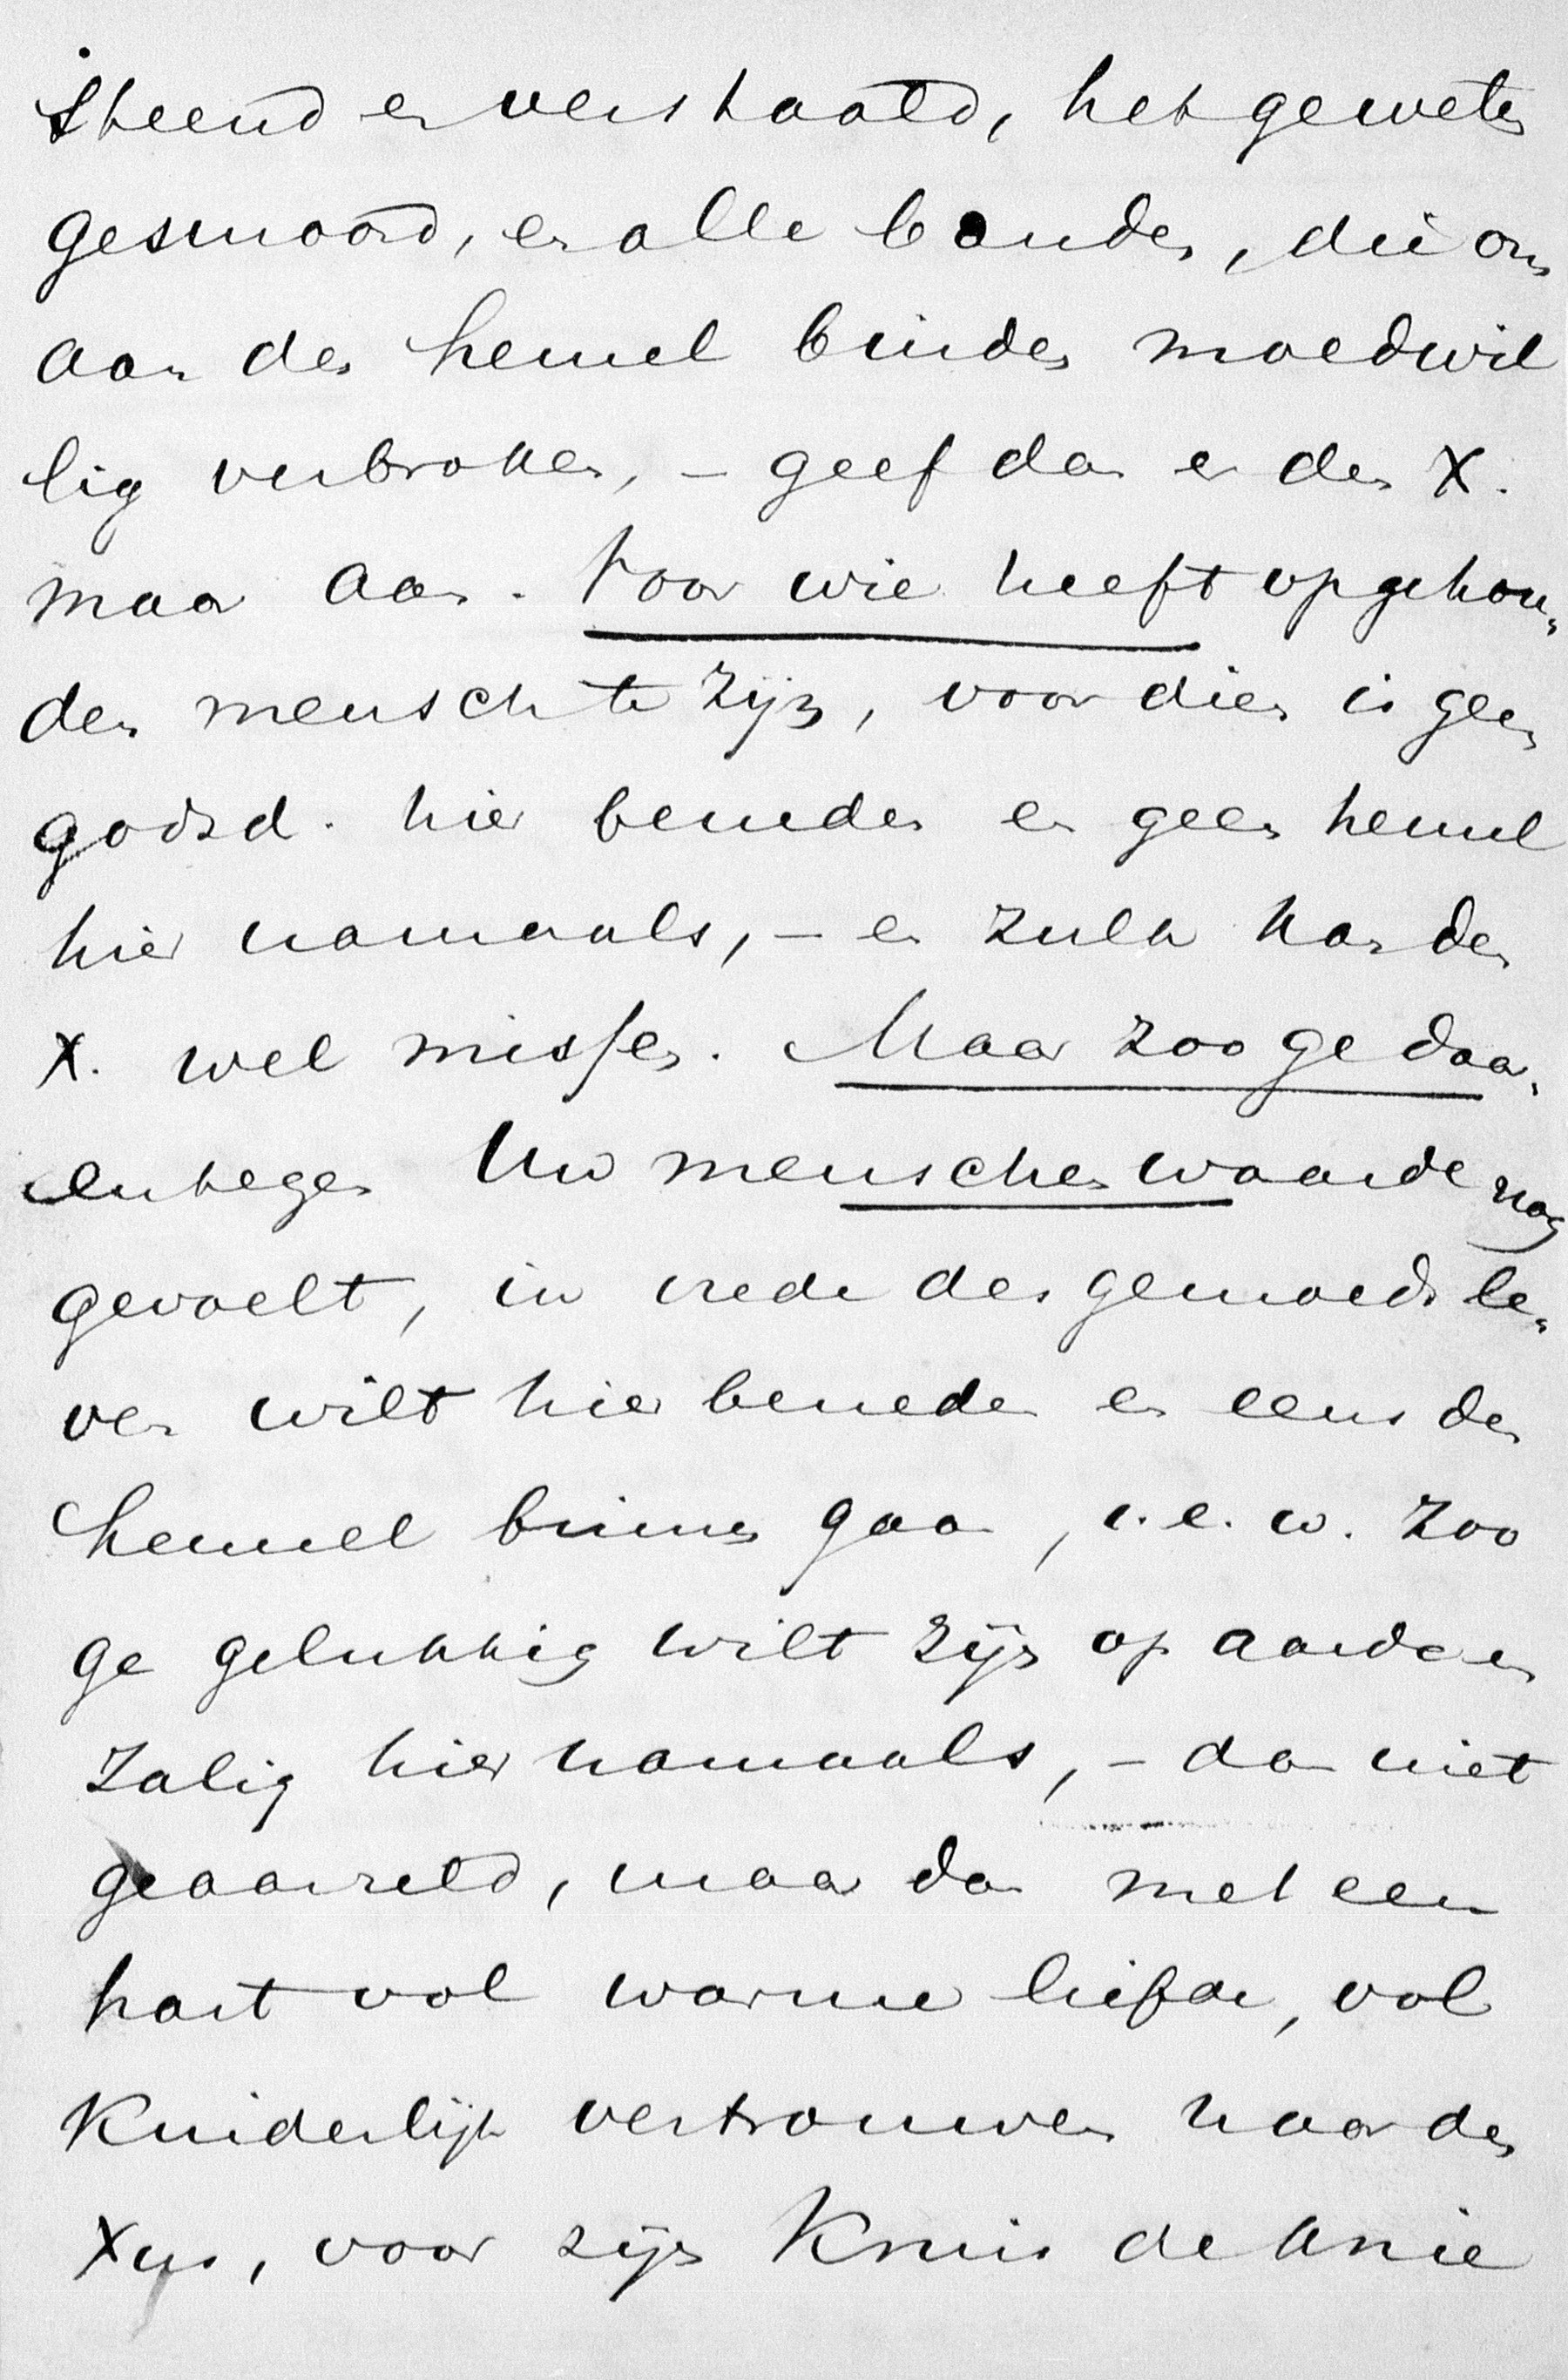 steend en verstaald, het geweten
gesmoord, en alle banden, die ons
aan den hemel binden moedwil
lig verbroken, – geef dan er den X.
maar aan. Voor wie heeft opgehou„
den mensch te zijn, voor dien is geen
godsd. hier beneden en geen hemel
hier namaals, – en zulk kan den
X. wel missen. Maar zoo ge daar„
entegen Uw menschenwaarde nog
gevoelt, in vrede des gemoeds le„
ven wilt hier beneden en eens den
hemel binnen gaan, i. e. w. zoo
ge gelukkig wilt zijn op aarde en
zalig hier namaals, – dan niet
geaarzeld, maar dan met een
hart vol warme liefde, vol
Kinderlijk vertrouwen naar den
Xus, voor zijn Kruis de knie